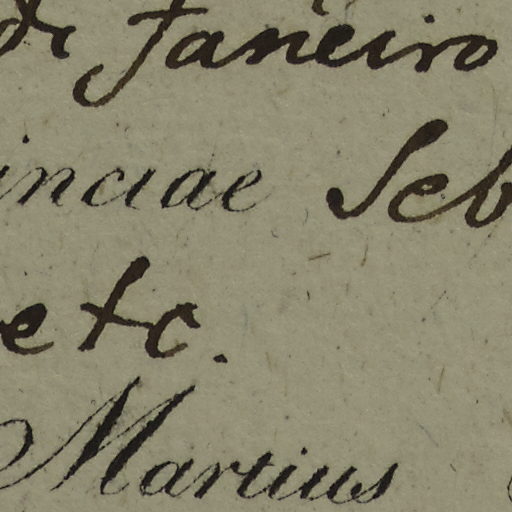 de Janeiro
inciae Seb
etc.
Martius